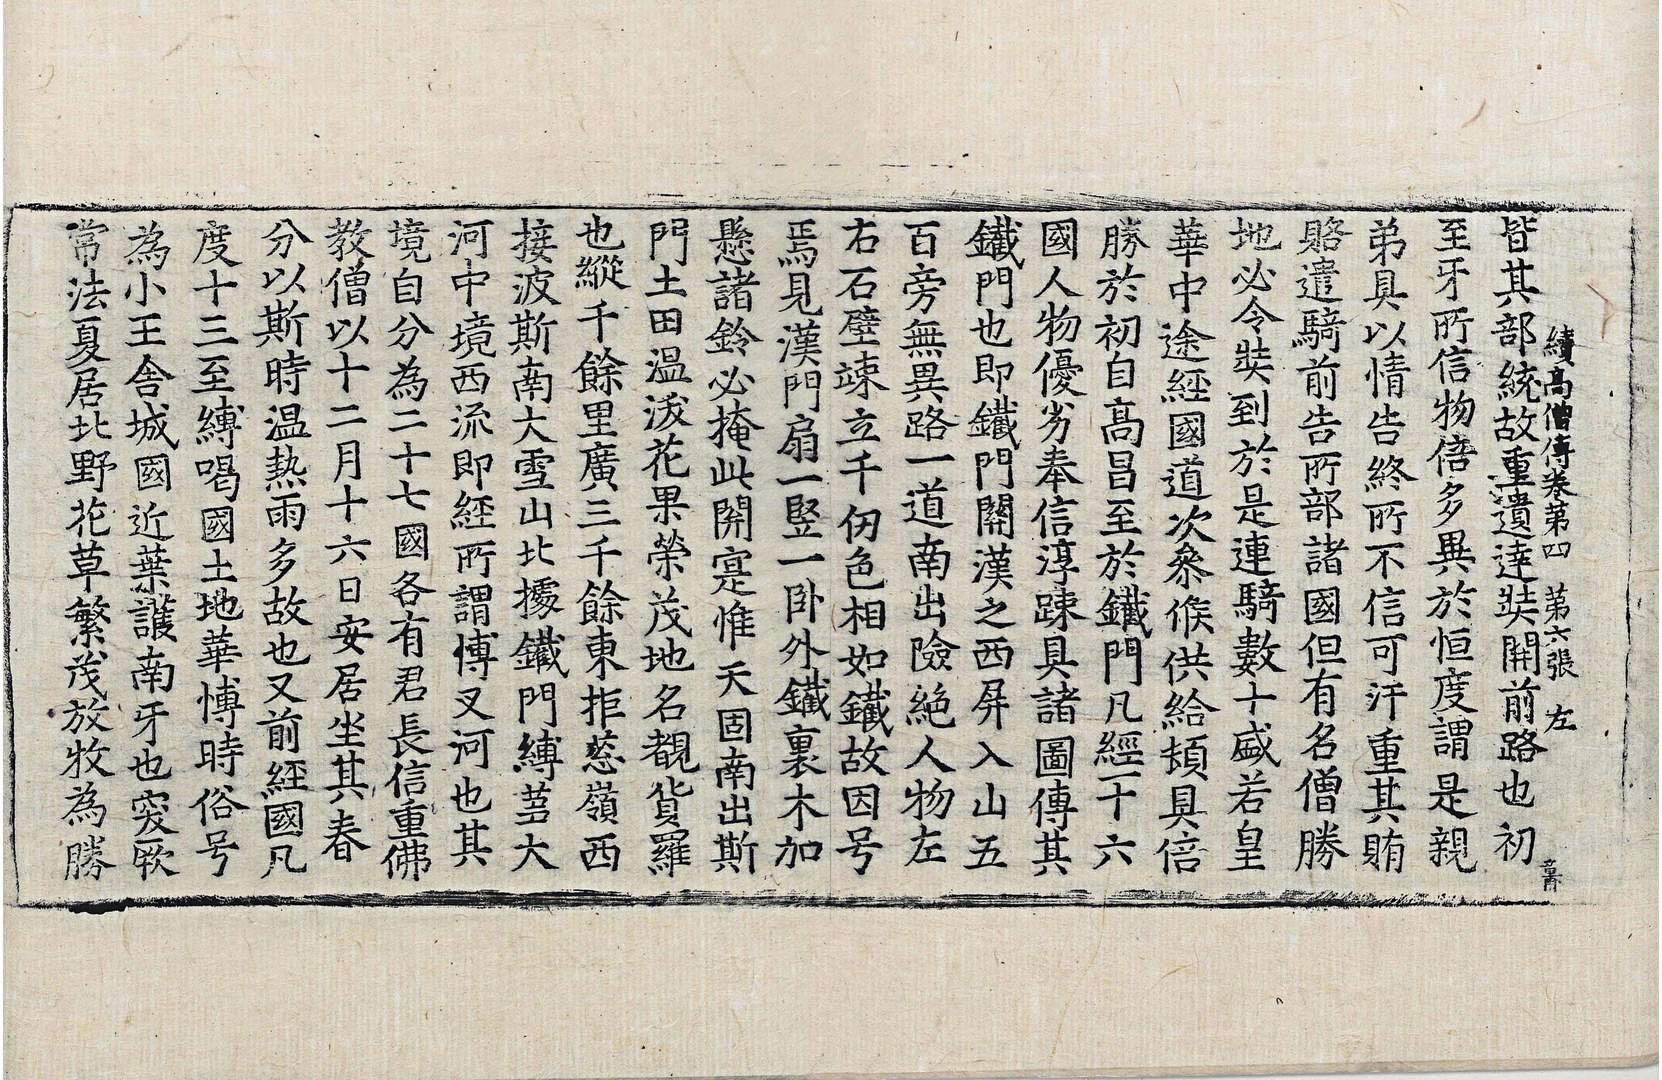 續高僧傳卷第四　第六張　左
皆其部統故重遺達奘開前路也初
至牙所信物倍多異於恒度謂是親
弟具以情告終所不信可汗重其賄
賂遣騎前告所部諸國但有名僧勝
地必令奘到於是連騎數十盛若皇
華中途經國道次叅候供給頓具倍
勝於初自高昌至於鐵門凡經十六
國人物優劣奉信淳踈具諸圖傳其
鐵門也即鐵門關漢之西屏入山五
百旁無異路一道南出險絶人物左
右石壁竦立千仞色相如鐵故因号
焉見漢門扇一竪一卧外鐵裏木加
懸諸鈴必掩此關寔惟天固南出斯
門土田温渜花果榮茂地名覩貨羅
也縱千餘里廣三千餘東拒葱嶺西
接波斯南大雪山北據鐵門縛芻大
河中境西流即經所謂博叉河也其
境自分為二十七國各有君長信重佛
教僧以十二月十六日安居坐其春
分以斯時温熱雨多故也又前經國凡
度十三至縛喝國土地華博時俗号
為小王舍城國近葉護南牙也突厥
常法夏居北野花草繁茂放牧為勝